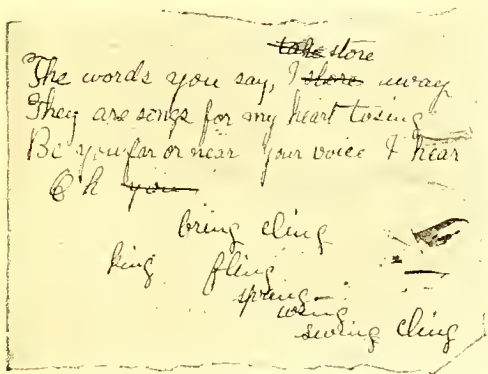 take store
The words you say, I store away
They are songs for my heart to sing
Be you far or near your voice I hear
Oh you
bring cling
king fling
spring
wing
swing cling